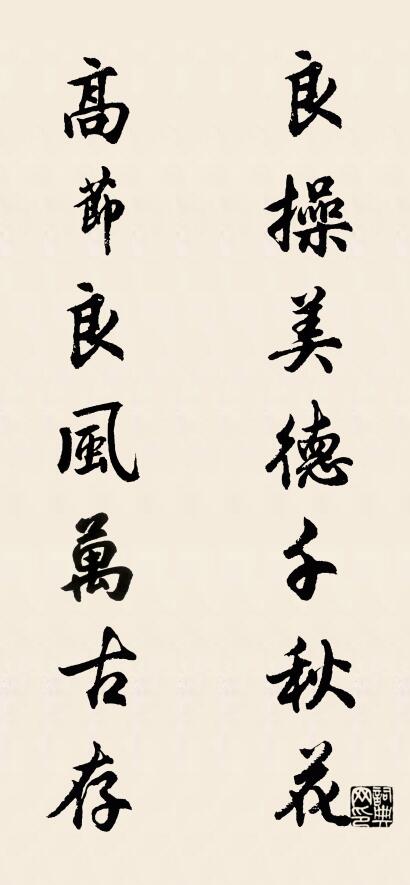 良操美德千秋花
高節良風萬古存
詞典網印